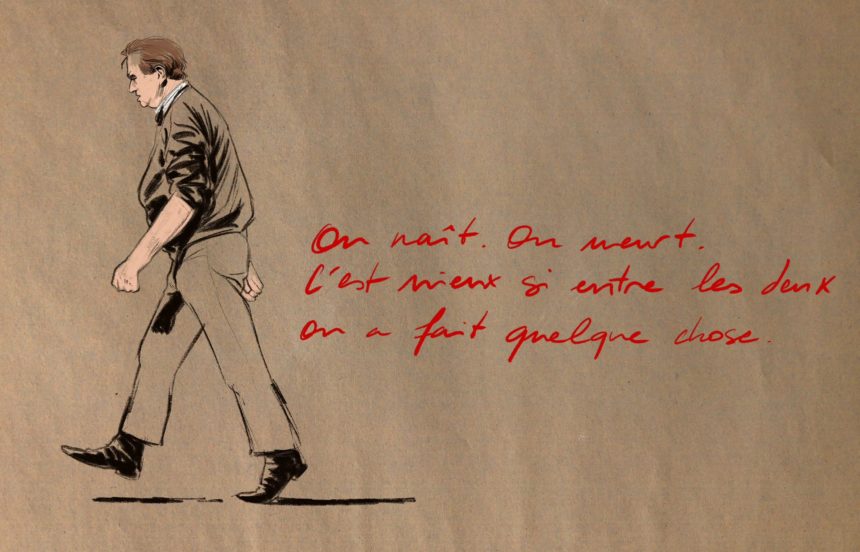 On naît. On meurt.
C'est mieux si entre les deux
on a fait quelque chose.